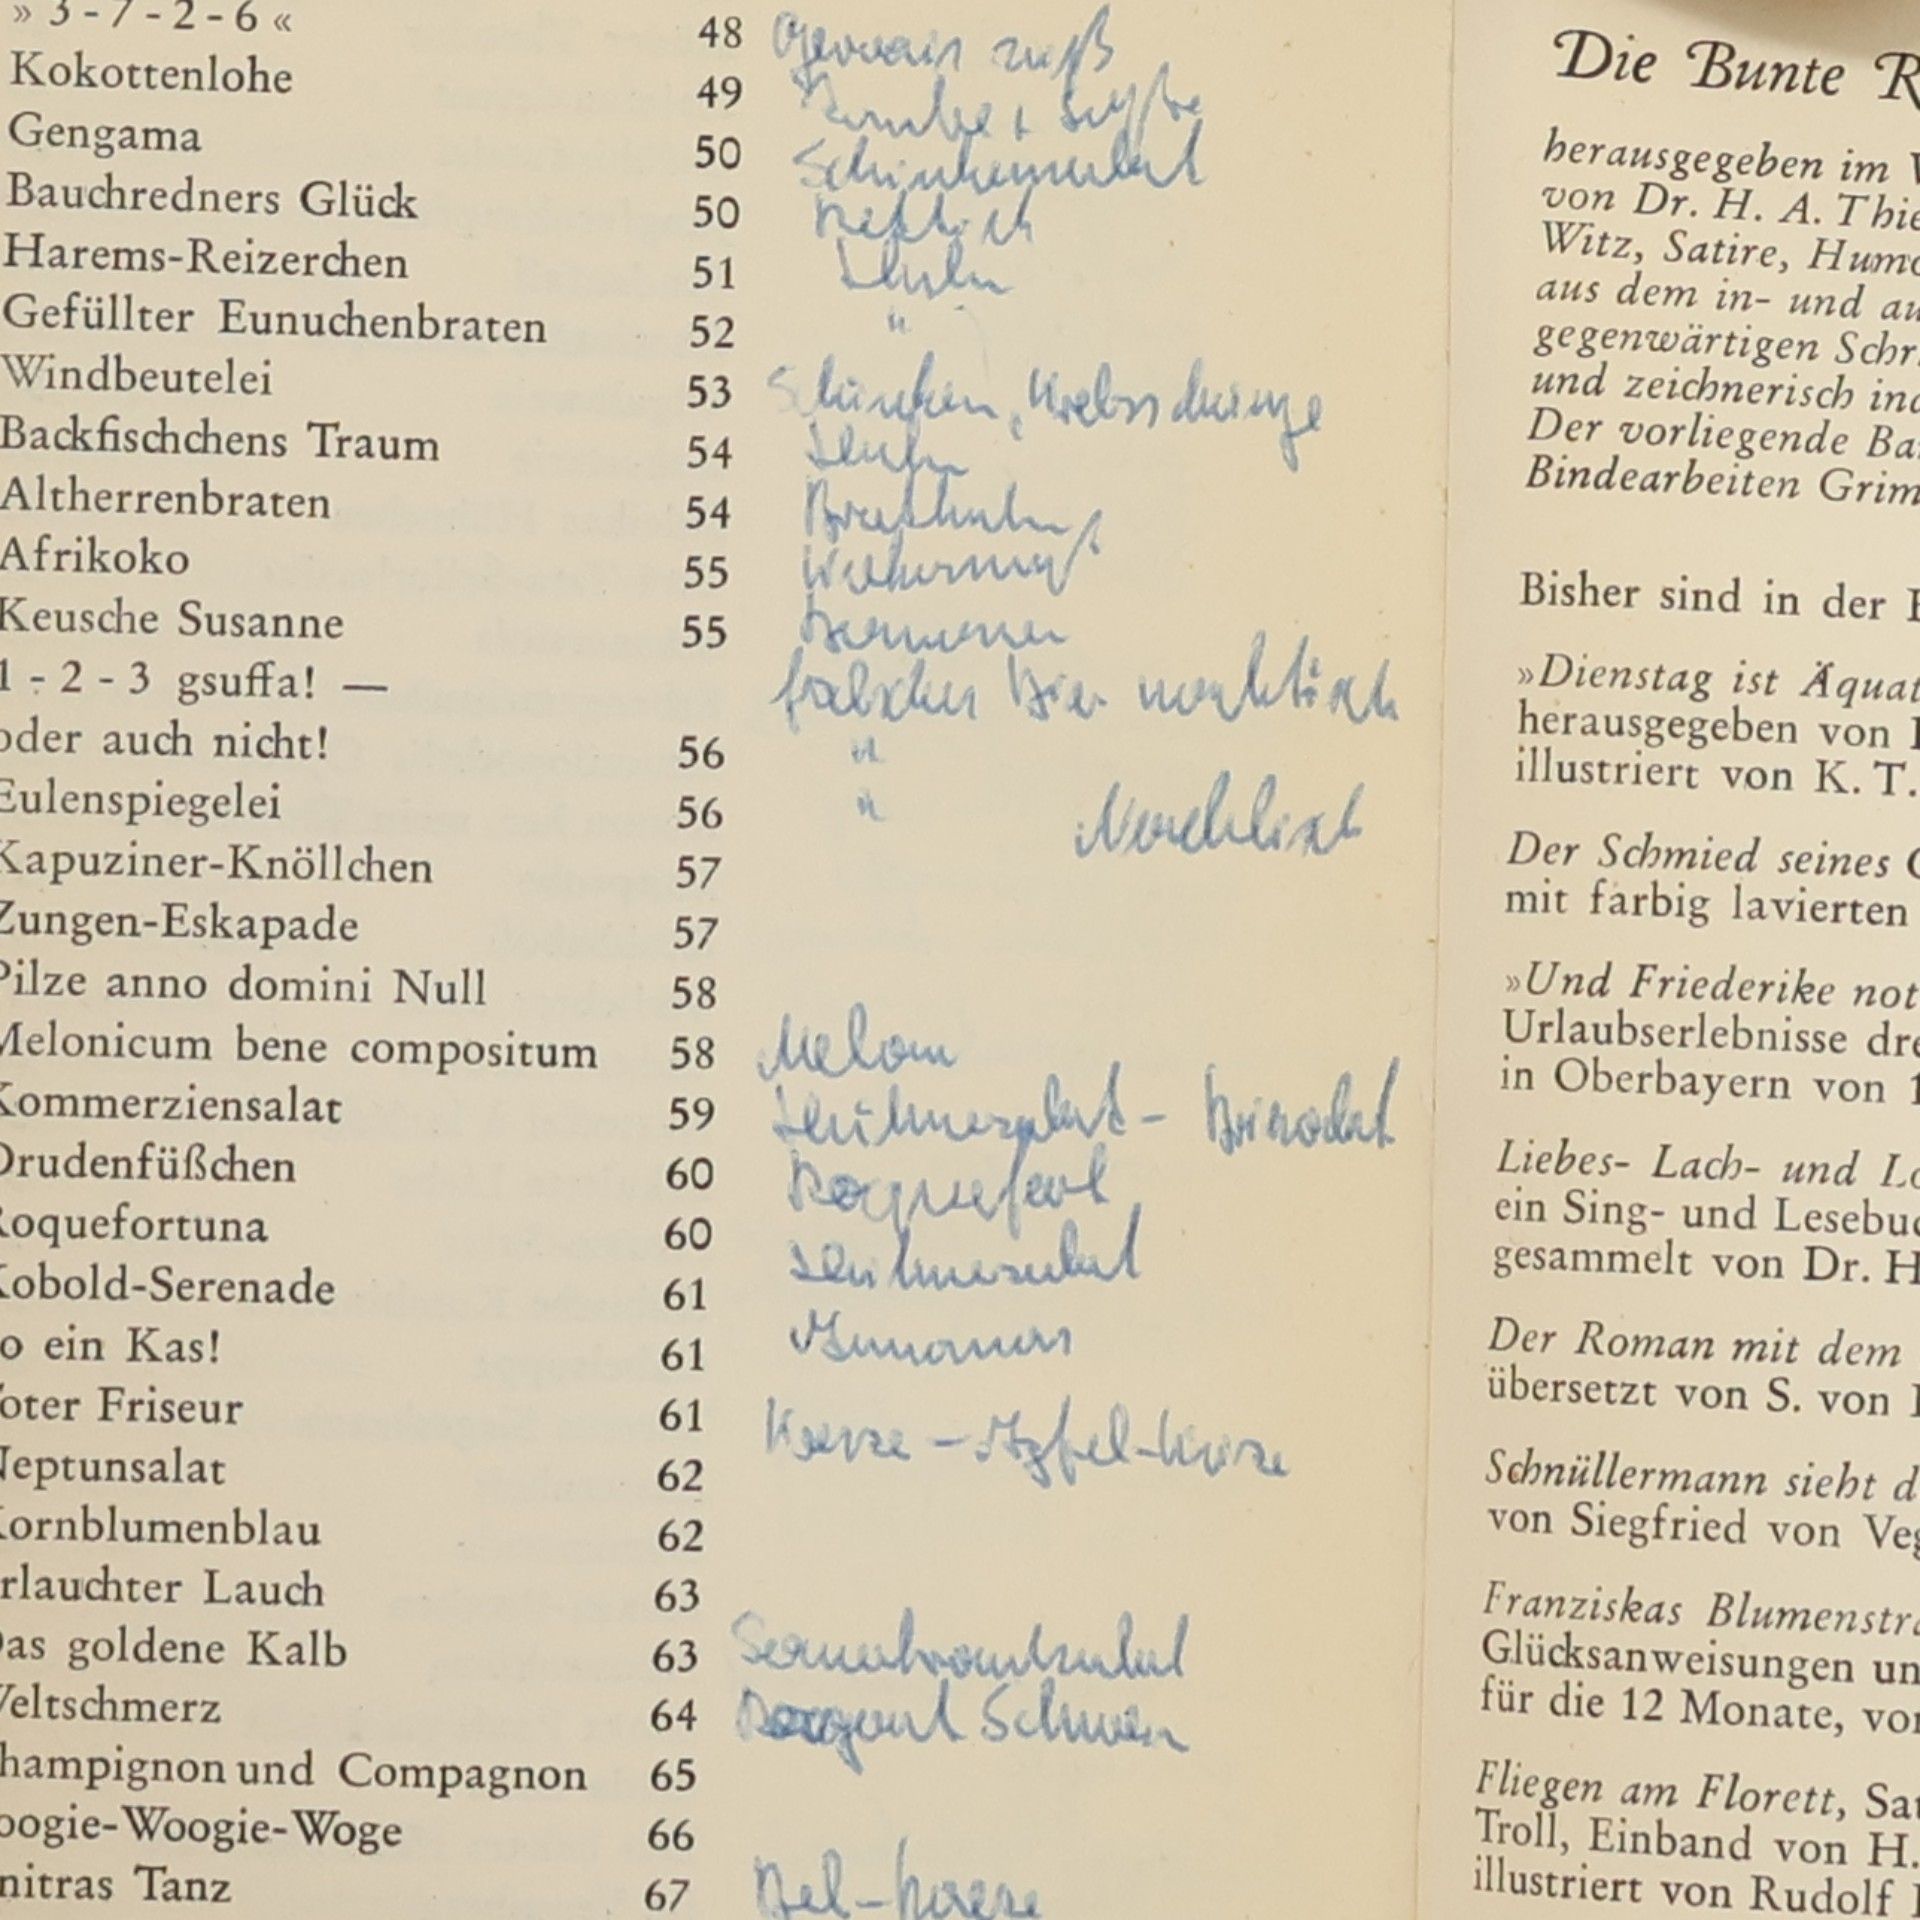 » 3 - 7 - 2 - 6 « 48 Gervais süß
Kokottenlohe 49
Gengama 50 Schinkensalat
Bauchredners Glück 50 Rettich
Harems-Reizerchen 51 Huhn
Gefüllter Eunuchenbraten 52 "
Windbeutelei 53 Schinken, Krebsschwänze
Backfischchens Traum 54 Huhn
Altherrenbraten 54 Brathuhn
Afrikoko 55 Kokosnuß
Keusche Susanne 55 Bananen
1 - 2 - 3 gsuffa! — falsches Bier nachtisch
oder auch nicht! 56 "
Eulenspiegelei 56 " Nachtisch
Kapuziner-Knöllchen 57
Zungen-Eskapade 57
Pilze anno domini Null 58
Melonicum bene compositum 58 Melone
Kommerziensalat 59 Hühnersalat -
Drudenfüßchen 60 Roquefort
Roquefortuna 60 Hühnersalat
Kobold-Serenade 61 Ananas
o ein Kas! 61
oter Friseur 61 Käse - Apfel-Käse
Neptunsalat 62
Kornblumenblau 62
rlauchter Lauch 63
Das goldene Kalb 63 Sauerkrautsalat
Weltschmerz 64 Ragout Schwein
hampignon und Compagnon 65
oogie-Woogie-Woge 66
nitras Tanz 67
Die Bunte R
herausgegeben im V
von Dr. H. A. Thie
Witz, Satire, Humo
aus dem in- und au
gegenwärtigen Schr
und zeichnerisch ind
Der vorliegende Ba
Bindearbeiten Grim
Bisher sind in der B
»Dienstag ist Äquat
herausgegeben von
illustriert von K. T.
Der Schmied seines G
mit farbig lavierten
»Und Friederike not
Urlaubserlebnisse dre
in Oberbayern von
Liebes- Lach- und Lo
ein Sing- und Lesebuc
gesammelt von Dr. H
Der Roman mit dem
übersetzt von S. von
Schnüllermann sieht d
von Siegfried von Veg
Franziskas Blumenstra
Glücksanweisungen un
für die 12 Monate, von
Fliegen am Florett, Sat
Troll, Einband von H.
illustriert von Rudolf